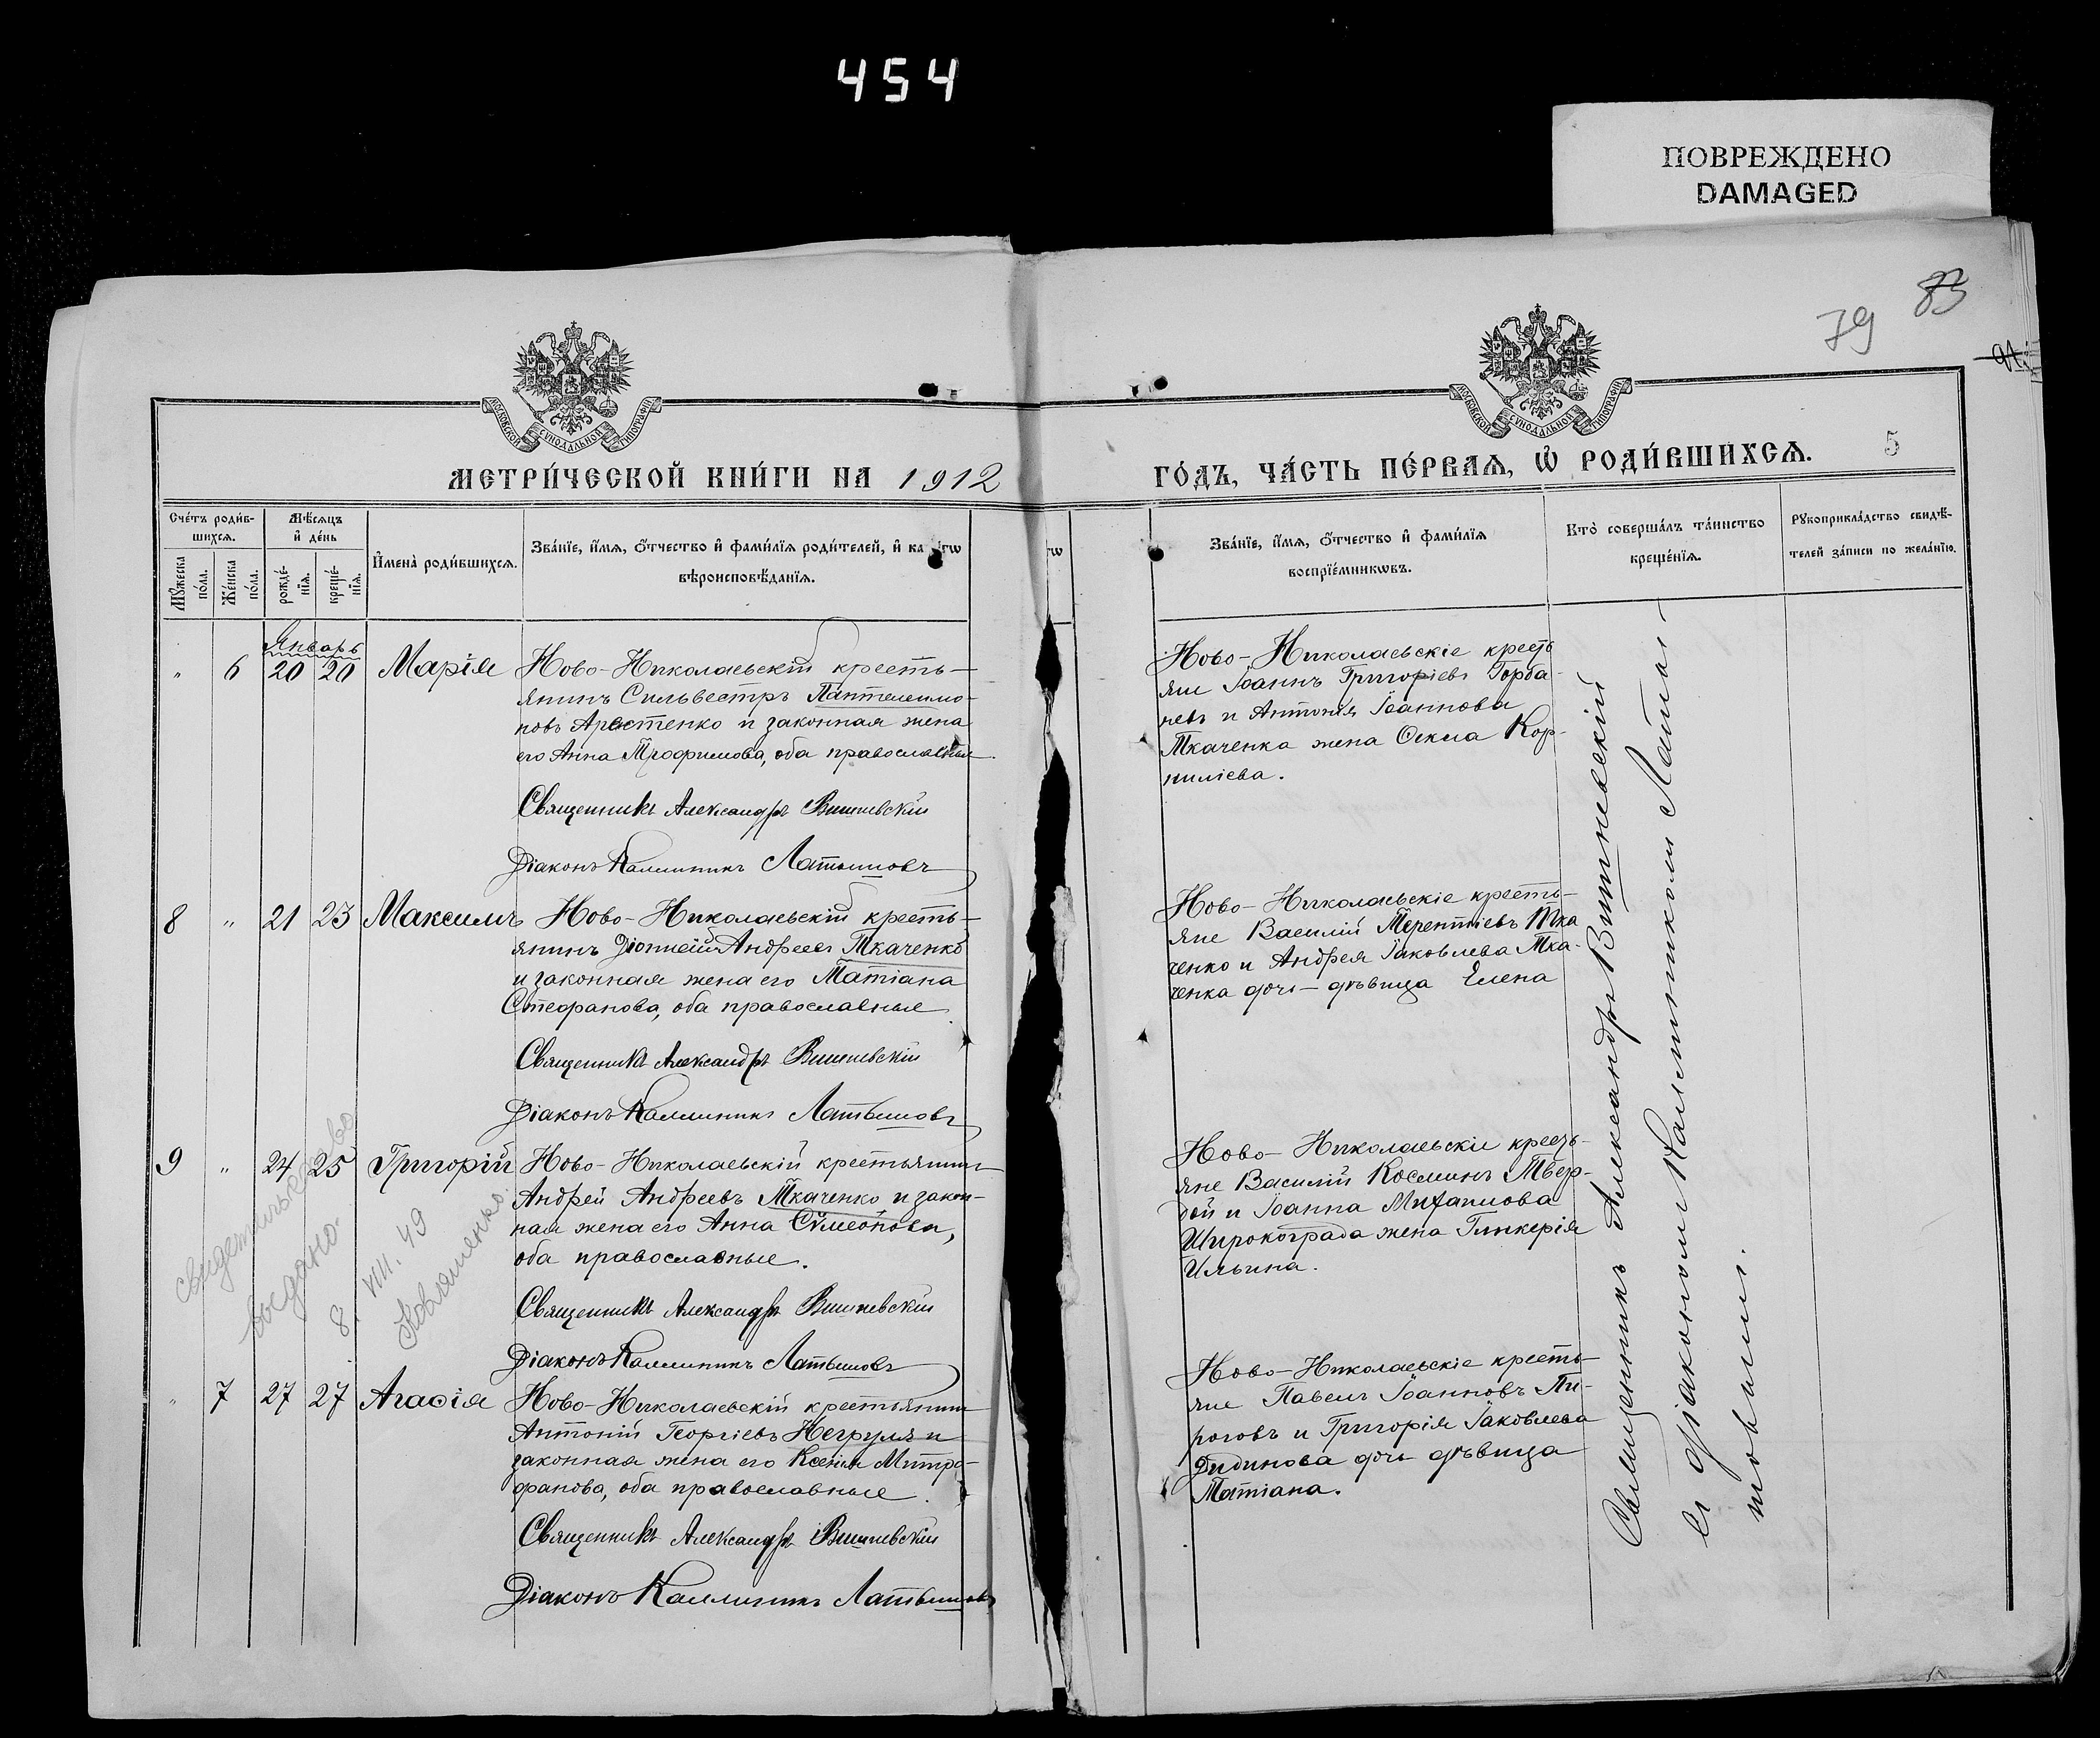 454
ПОВРЕЖДЕНО
DAMAGED
83
79
МОСКОВСКОЙ СѴНОДАЛЬНОЙ ТИПОГРАФІИ
МОСКОВСКОЙ СѴНОДАЛЬНОЙ ТИПОГРАФІИ
МЕТРИ́ЧЕСКОЙ КНИ́ГИ НА 1912
ГО́ДЪ, ЧА́СТЬ ПЕ́РВАѦ, Ѽ РОДИ́ВШИХСѦ.
5
Сче́тъ роди́в-
шихсѧ.
Мѣ́сѧцъ
и҆ де́нь
Мꙋ́жеска
по́ла.
Же́нска
по́ла.
рожде́-
нїѧ.
креще́-
нїѧ.
И҆мена̀ роди́вшихсѧ.
Зва́нїе, и҆́мѧ, ѻ҆́тчество и҆ фами́лїѧ роди́телей, и҆ ка гѡ
вѣроисповѣ́данїѧ.
гѡ
Зва́нїе, и҆́мѧ, ѻ҆́тчество и҆ фами́лїѧ
воспрїе́мникѡвъ.
Кто̀ соверша́лъ та́инство
креще́нїѧ.
Рꙋкоприкла́дство свидѣ́-
телей за́писи по жела́нїю.
Январь
" 6 20 20 Марія
Ново-Николаевскій кресть-
янинъ Сильвестръ Пантелеимо-
новъ Аростенко и законная жена
его Анна Трофимова, оба православные
Священникъ Александръ Вишневскій
Діаконъ Каллиникъ Латышовъ
Ново-Николаевскіе кресть
яне Іоаннъ Григоріевъ Горба-
невъ и Антонія Іоаннова
Ткаченка жена Фекла Кор-
ниліева.
8 " 21 23 Максимъ
Ново-Николаевскій кресть-
янинъ Діонисій Андреевъ Ткаченко
и законная жена его Татіана
Стефанова, оба православные
Священникъ Александръ Вишневскій
Діаконъ Каллиникъ Латышовъ
Ново-Николаевскіе кресть-
яне Василій Терентіевъ Тка
ченко и Андрея Іаковлева Тка-
ченка дочь-дѣвица Елена
9 " 24 25 Григорій
Ново-Николаевскій крестьянинъ
Андрей Андреевъ Ткаченко и закон-
ная жена его Анна Сѵмеонова,
оба православные.
Священникъ Александръ Вишневскій
Діаконъ Каллиникъ Латышовъ
свидетельство
выдано
8. VIII. 49
Ново-Николаевскіе кресть-
яне Василій Космин Твер-
дой и Іоанна Михаилова
Широкограда жена Гликерія
Ильина.
" 7 27 27 Агафія
Ново-Николаевскій крестьянинъ
Антоній Георгіевъ Негруля и
законная жена его Ксенія Митро-
фанова, оба православные.
Священникъ Александръ Вишневскій
Діаконъ Каллиникъ Латышовъ
Ново-Николаевскіе кресть-
яне Павелъ Іоанновъ Пи-
роговъ и Григорія Іаковлева
Дидинова дочь дѣвица
Татіана.
Священникъ Александръ Вишневскій
съ діакономъ Каллиникомъ Латы-
шовымъ.